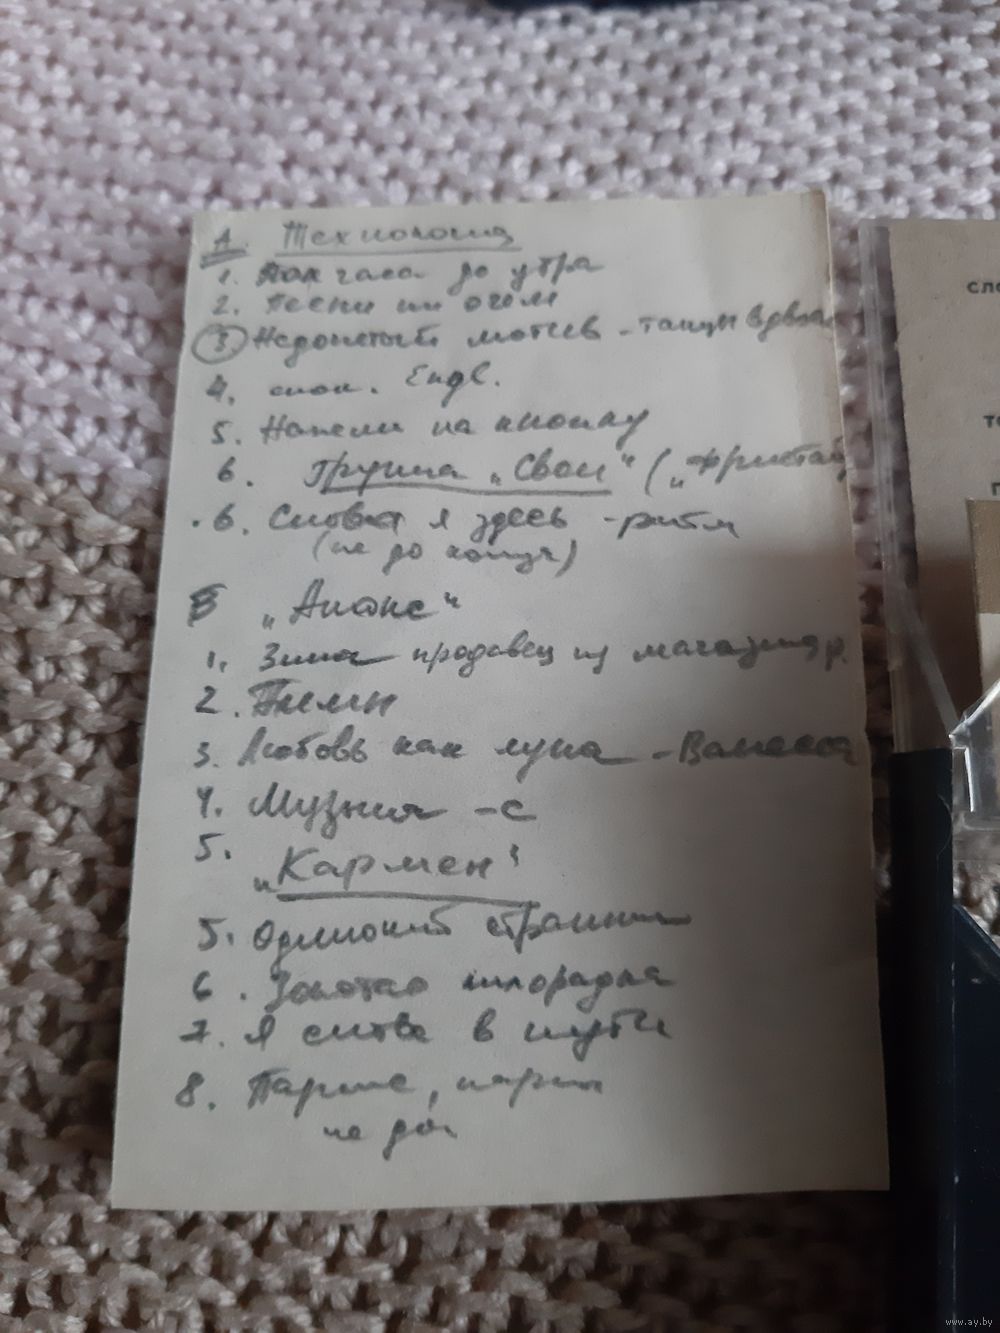 А. Технология
1. Пол часа до утра
2. Песни ни о чём
3 Недопетый мотив - танцы вдвоём
4. спок. Engl.
5. Нажми на кнопку
6. Группа „Свои" („Фристай
6. Снова я здесь - ритм
(не до конца)
Б „Альянс"
1. Зина продавец из магазина р.
2.
3. Любовь как луна - Ванесса
4. Музыка - с
5.
„Кармен"
5. Одинокий странник
6. Золотое
7. Я снова в пути
8. Парни, парни
не
сло
то
п
www.ay.by